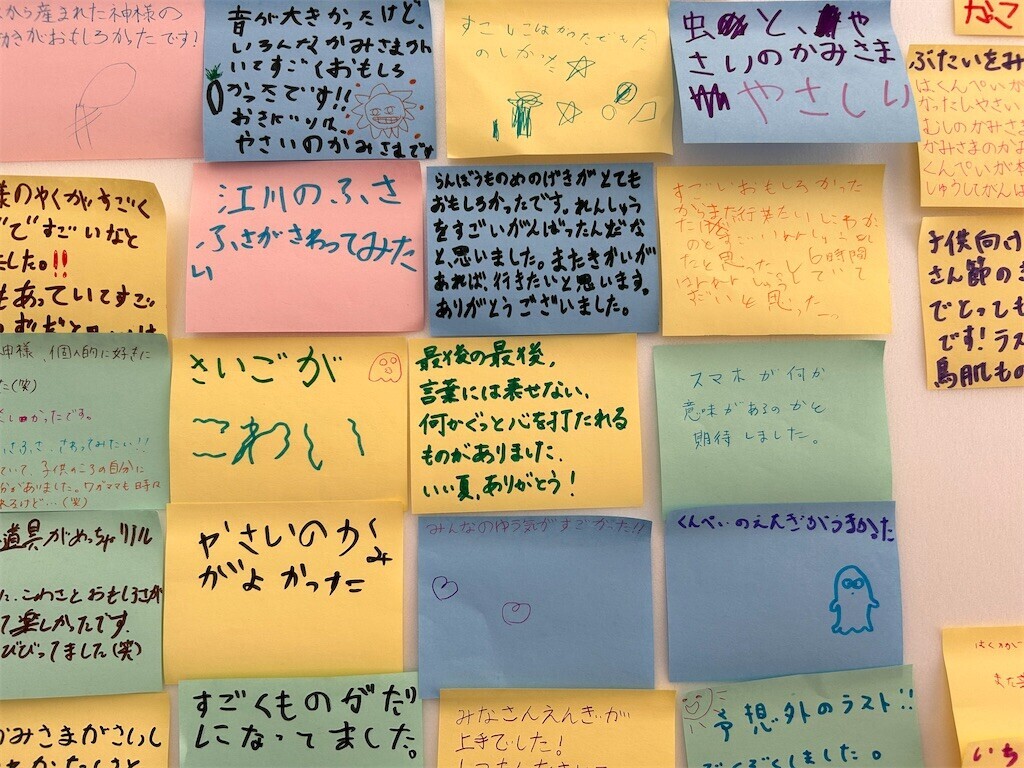 から産まれた神様の
おもしろかったです!
音が大きかったけど、
いろんなかみさまがん
いてすごくおもしろ
かったです!!
おきにいりは、
やさいのかみさまです
すこしこはかったですだ
のしかった
虫と、や
さいのかみさま
やさしい
なこ
ぶたいをみ
はくんぺいが
かったしやさい
むしのかみさま
かみさまのかみ
くんぺいが
しゅうしてがんば
様のやくがすごく
ですごいなと
した。!!
もあっていてすご
江川のふさ
ふさがさわってみた
い
らんぼうものめのげきがとても
おもしろかったです。れんしゅう
をすごいがんばったんだな
と思いました。またきかいが
あれば、行きたいと思います。
ありがとうございました。
すごいおもしろかった
からまた行きたいしこわか
たと思った 6時間
すごいと思った
子供向け
さん節の
でとっても
です!ラス
鳥肌もの
神様、個人的に好きに
た(笑)
しかったです。
さふさ、さわってみたい!!
ていて、子供のころの自分に
分がありました。ワガママも時々
れるけど…(笑)
さいごが
〜こわろ〜い
最後の最後、
言葉には乗せない、
何かぐっと心を打たれる
ものがありました、
いい夏、ありがとう!
スマホが何か
意味があるのかと
期待しました。
道具がめっちゃリアル
た、こわさとおもしろさが
て楽しかったです。
びびってました(笑)
やさいのかみ
がよかった
みんなのゆう気がすごかた!!
くんぺいのえんぎがうまかた
かみさまがさいし
すごくものがだい
じになってました。
みなさんえんぎが
上手でした!
予想外のラスト!!
ぞくぞくしました。
はくりょくが
また
いち